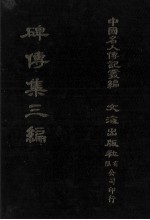 中國名人傳記叢編
碑傳集三編
文海出版社有限公司印行